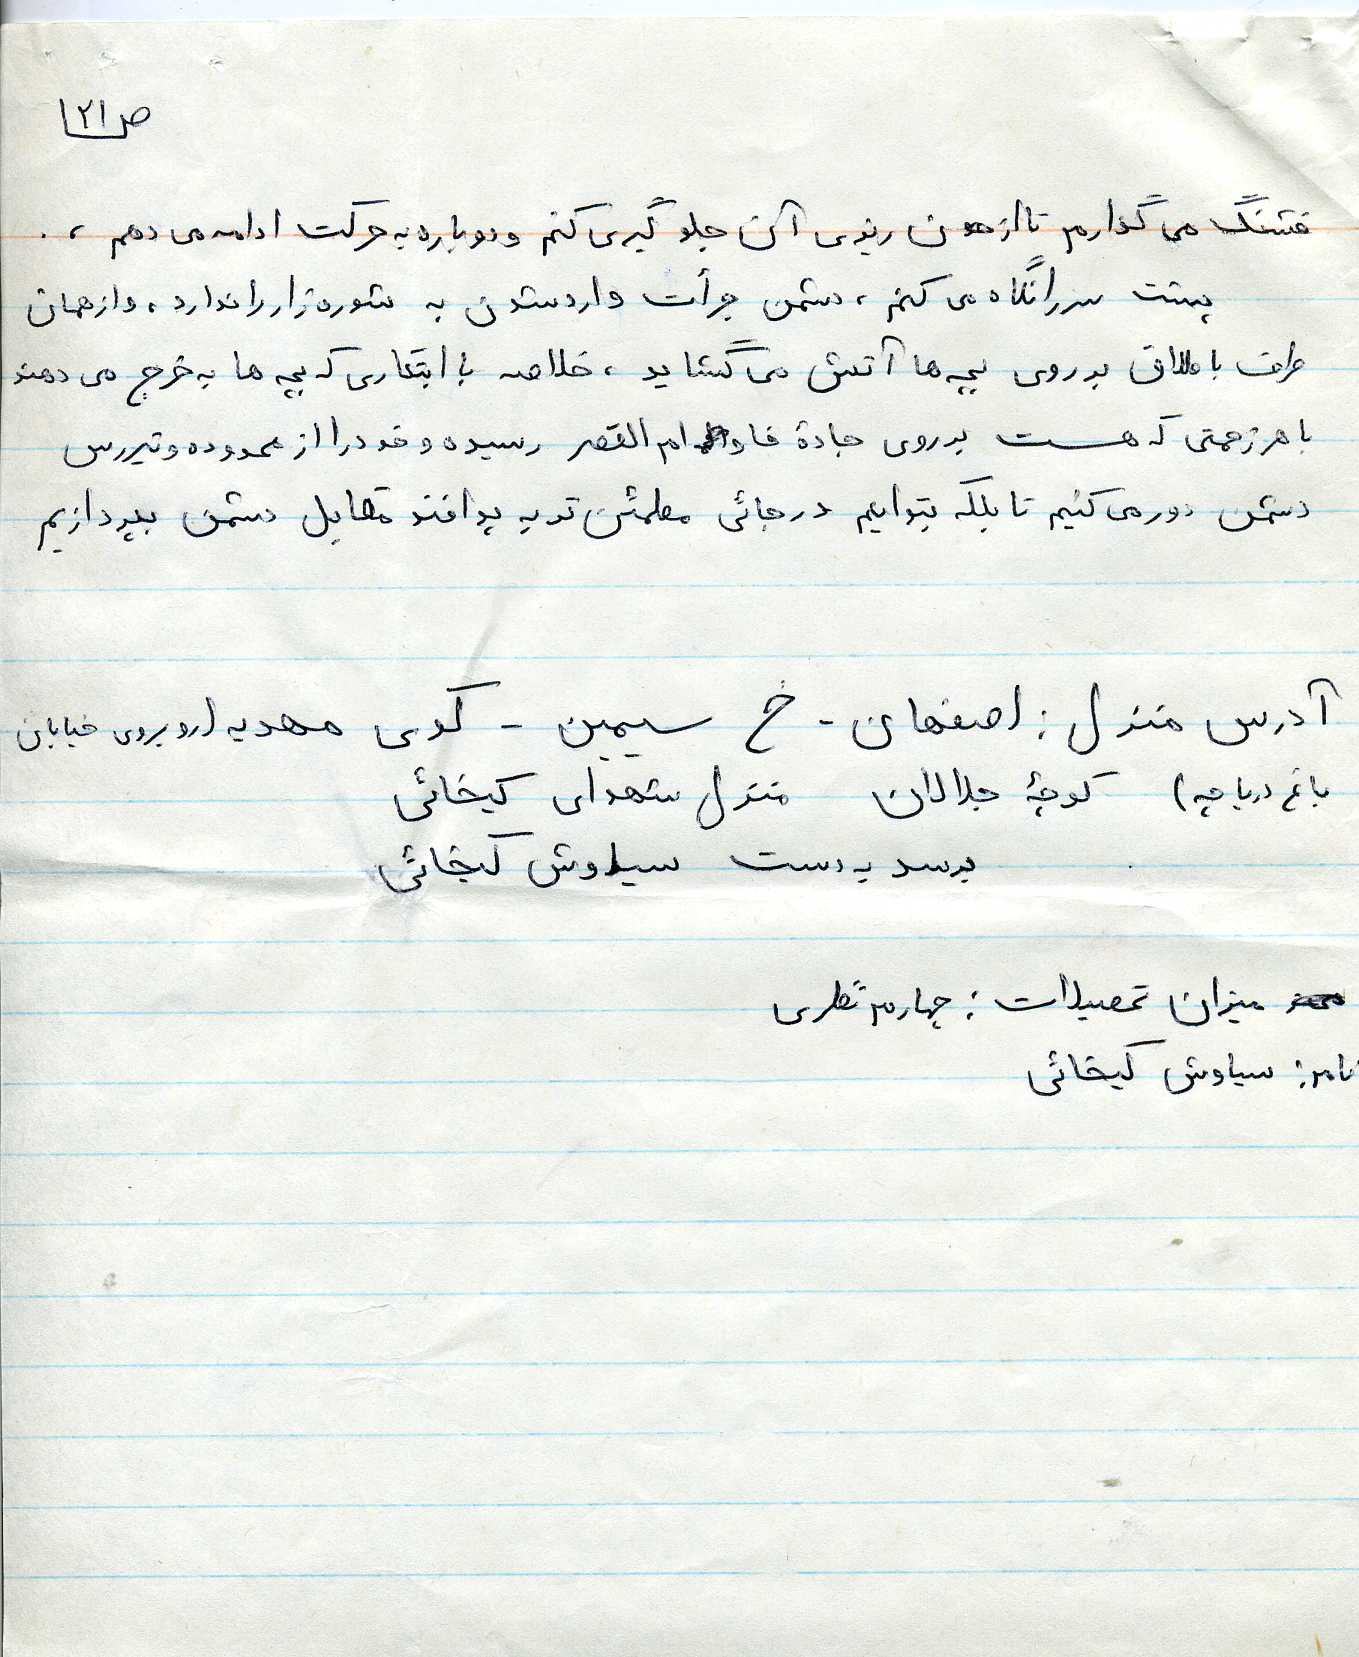 ص ۱۲۱
فشنگ می گذارم تا از خون ریزی آن جلو گیری کنم و دوباره به حرکت ادامه می دهم ،.
پشت سر را نگاه می کنم ، دشمن جرأت وارد شدن به شوره زار را ندارد ، و از همان
طرف باطلاق بر روی بچه ها آتش می گشاید ، خلاصه با ابتکاری که بچه ها به خرج می دهند
با هر زحمتی که هست بر روی جادهٔ فاو ام القصر رسیده و خود را از محدوده و تیررس
دشمن دور می کنیم تا بلکه بتوانیم در جائی مطمئن تر به پدافند مقابل دشمن بپردازیم
آدرس منزل : اصفهان - خ سیمین - کوی مهدیه (روبروی خیابان
باغ دریاچه) کوچهٔ جلالان منزل شهدای کیخائی
برسد بدست سیاوش کیخائی
میزان تحصیلات : چهارم نظری
نام : سیاوش کیخائی